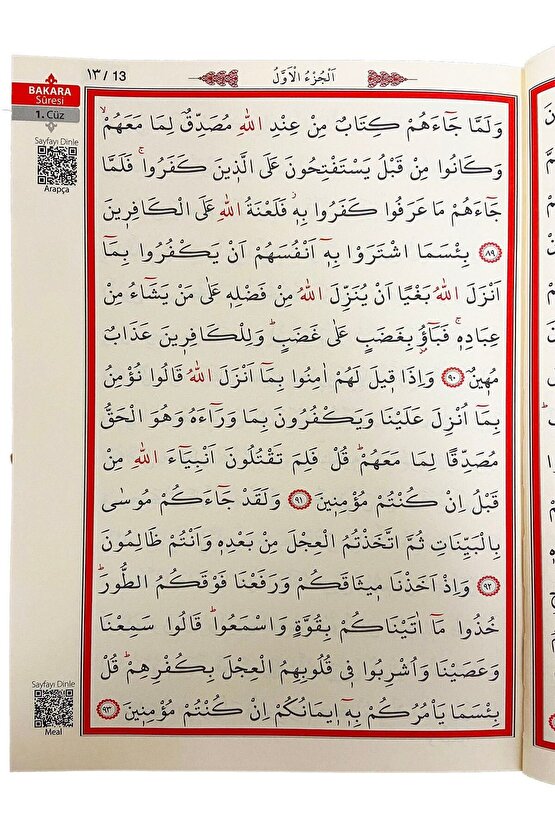 BAKARA
Sûresi
1. Cüz
Sayfayı Dinle
Arapça
١٣ / 13
اَلْجُزْءُ الْاَوَّلُ
وَلَمَّا جَٓاءَهُمْ كِتَابٌ مِنْ عِنْدِ اللّٰهِ مُصَدِّقٌ لِمَا مَعَهُمْۙ
وَكَانُوا مِنْ قَبْلُ يَسْتَفْتِحُونَ عَلَى الَّذ۪ينَ كَفَرُواۚ فَلَمَّا
جَٓاءَهُمْ مَا عَرَفُوا كَفَرُوا بِه۪ۘ فَلَعْنَةُ اللّٰهِ عَلَى الْكَافِر۪ينَ
﴿٨٩﴾ بِئْسَمَا اشْتَرَوْا بِه۪ٓ اَنْفُسَهُمْ اَنْ يَكْفُرُوا بِمَٓا
اَنْزَلَ اللّٰهُ بَغْيًا اَنْ يُنَزِّلَ اللّٰهُ مِنْ فَضْلِه۪ عَلٰى مَنْ يَشَٓاءُ مِنْ
عِبَادِه۪ۚ فَبَٓاؤُ۫ بِغَضَبٍ عَلٰى غَضَبٍۜ وَلِلْكَافِر۪ينَ عَذَابٌ
مُه۪ينٌ ﴿٩٠﴾ وَاِذَا ق۪يلَ لَهُمْ اٰمِنُوا بِمَٓا اَنْزَلَ اللّٰهُ قَالُوا نُؤْمِنُ
بِمَٓا اُنْزِلَ عَلَيْنَا وَيَكْفُرُونَ بِمَا وَرَٓاءَهُ وَهُوَ الْحَقُّ
مُصَدِّقًا لِمَا مَعَهُمْۜ قُلْ فَلِمَ تَقْتُلُونَ اَنْبِيَٓاءَ اللّٰهِ مِنْ
قَبْلُ اِنْ كُنْتُمْ مُؤْمِن۪ينَ ﴿٩١﴾ وَلَقَدْ جَٓاءَكُمْ مُوسٰى
بِالْبَيِّنَاتِ ثُمَّ اتَّخَذْتُمُ الْعِجْلَ مِنْ بَعْدِه۪ وَاَنْتُمْ ظَالِمُونَ
﴿٩٢﴾ وَاِذْ اَخَذْنَا م۪يثَاقَكُمْ وَرَفَعْنَا فَوْقَكُمُ الطُّورَۜ
خُذُوا مَٓا اٰتَيْنَاكُمْ بِقُوَّةٍ وَاسْمَعُواۜ قَالُوا سَمِعْنَا
وَعَصَيْنَا وَاُشْرِبُوا ف۪ي قُلُوبِهِمُ الْعِجْلَ بِكُفْرِهِمْۜ قُلْ
بِئْسَمَا يَأْمُرُكُمْ بِه۪ٓ ا۪يمَانُكُمْ اِنْ كُنْتُمْ مُؤْمِن۪ينَ ﴿٩٣﴾
Sayfayı Dinle
Meal